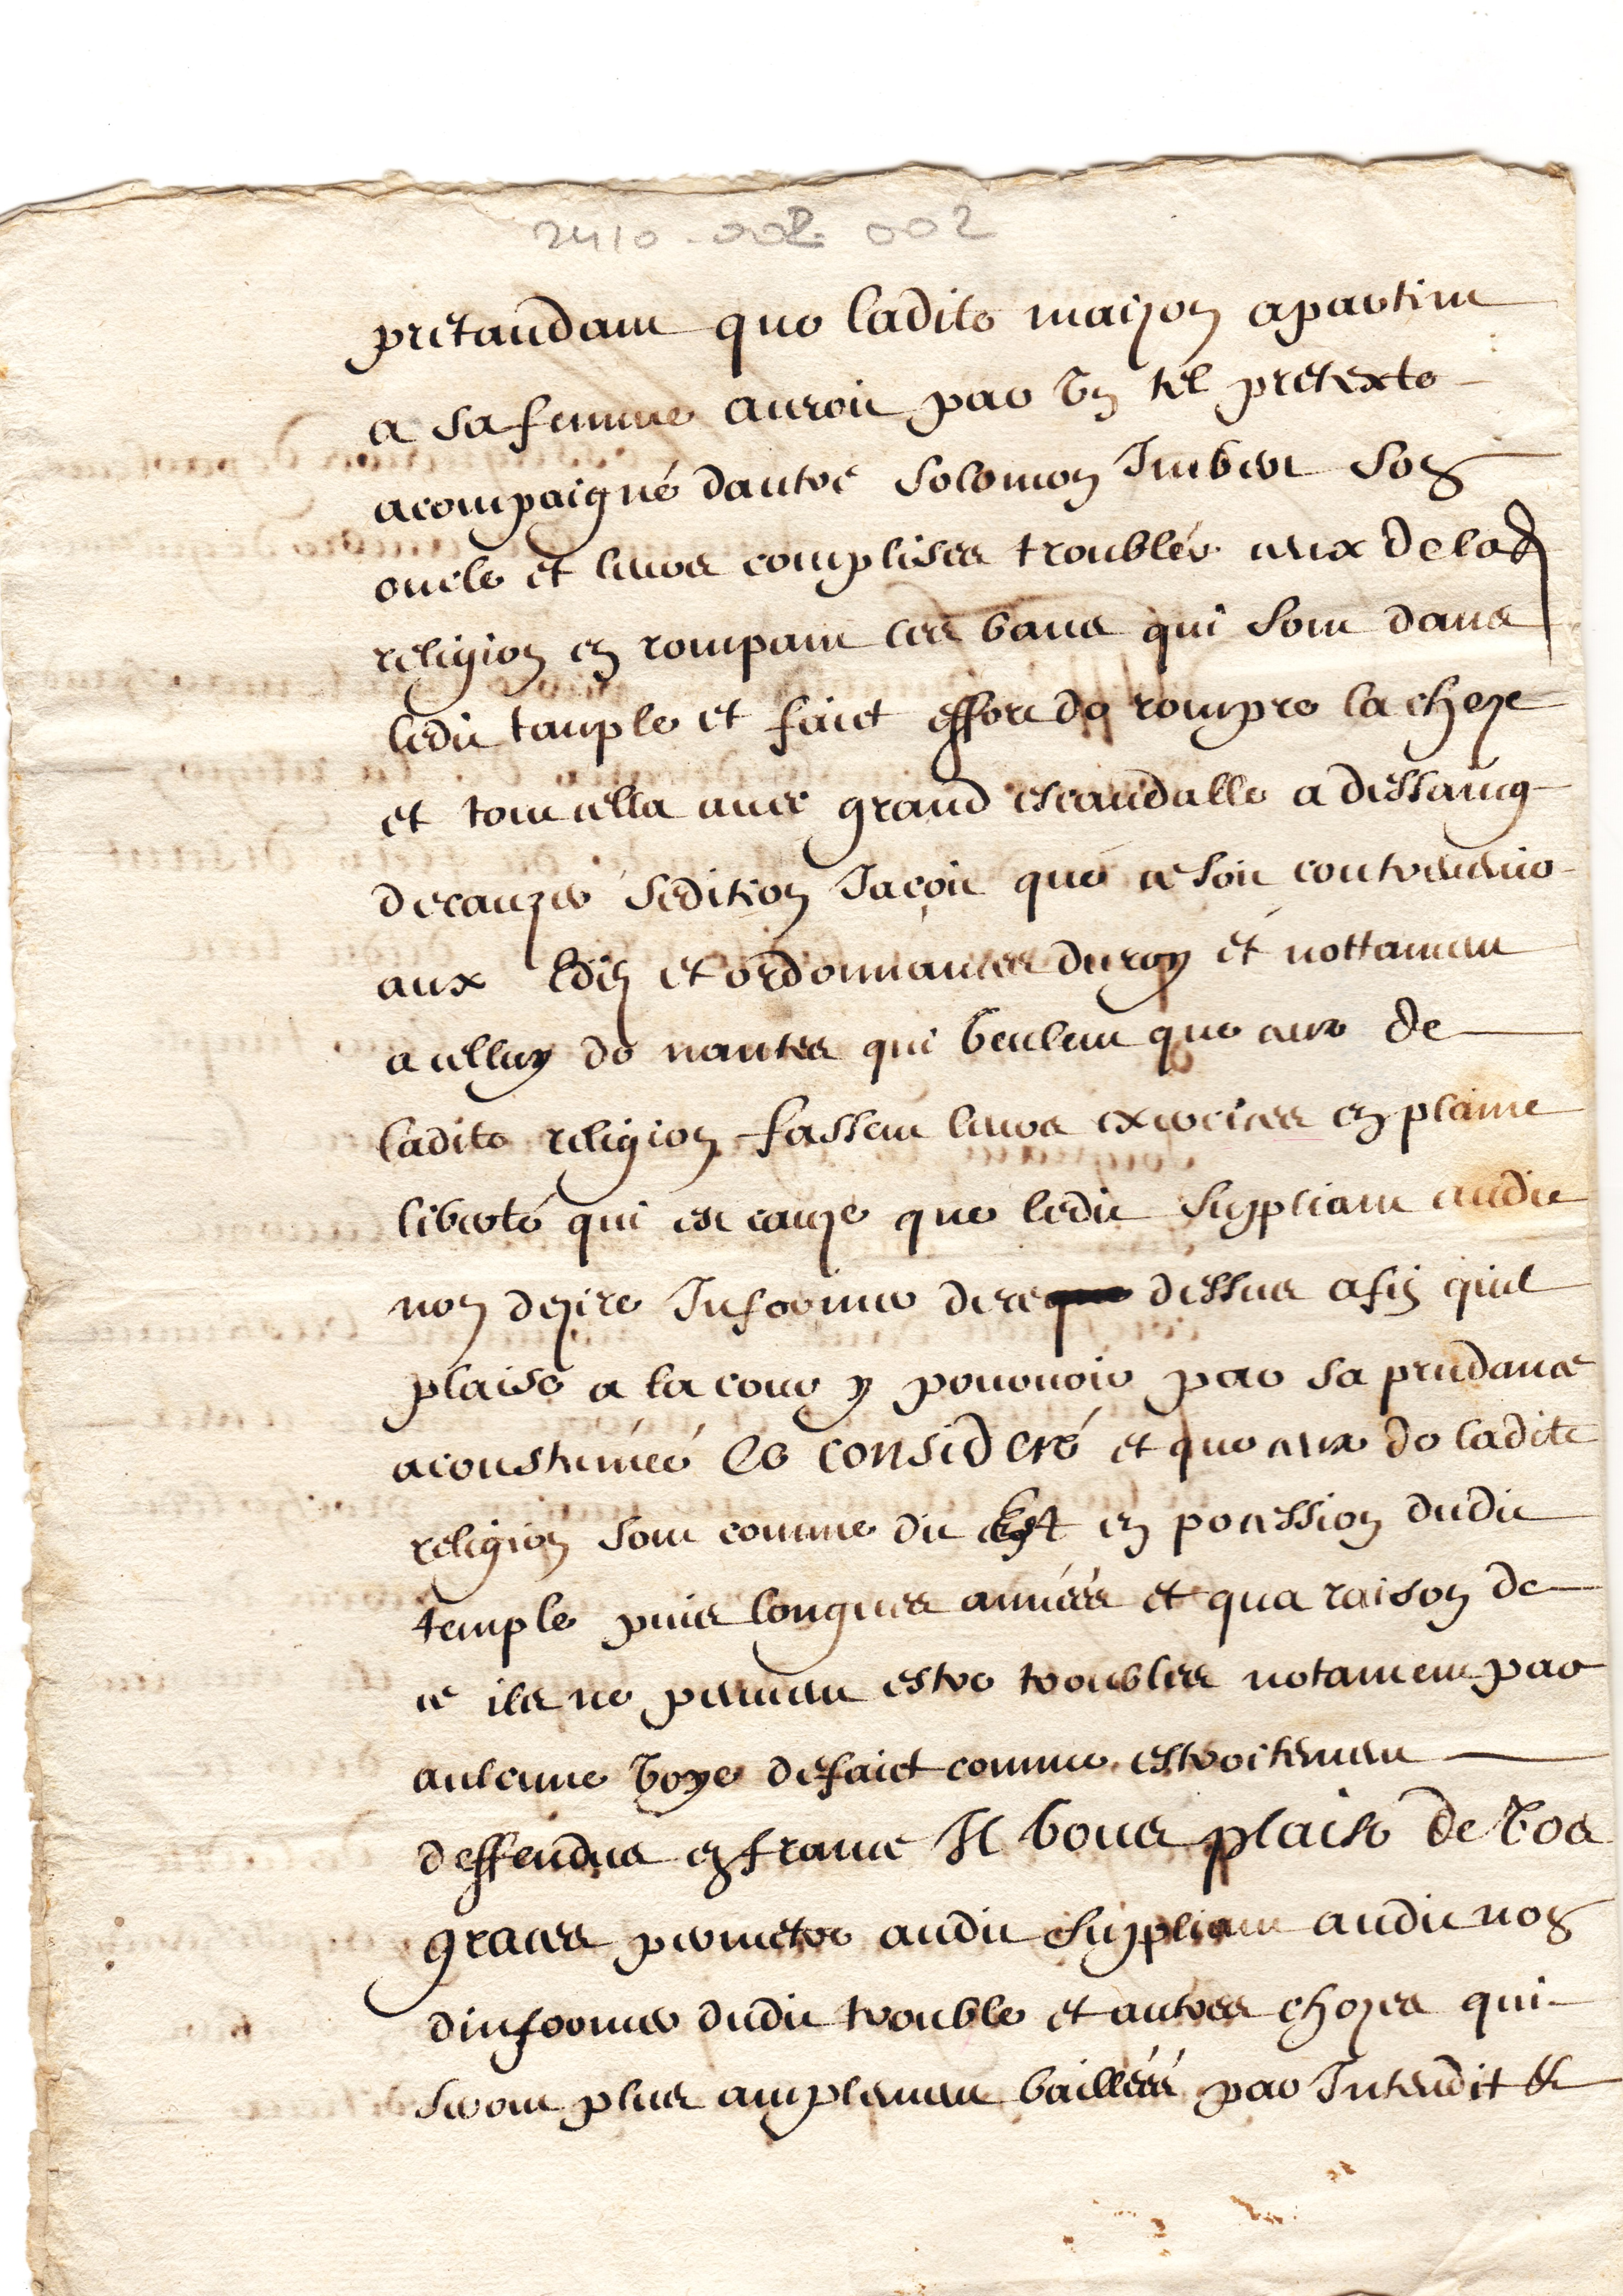 2410-002. 002
pretandant que ladite maizon apartint
a sa femme auroit par un tel pretexte
acompaigné dautre Solomon Imbert son
oncle et leurs complises troublés ceux de lad
religion en rompant les bans qui sont dans
ledit tanple et faict effort de rompre la cheze
et tout cella avec grand escandalle a dessaing
decauzer sedition Jaçoit que ce soit contrevenir
aux Edis et ordonnances du roy et nottament
a celluy de nantes qui veulent que ceux de
ladite religion fassent leurs exercices en plaine
liberté qui est cauze que ledit Suppliant audit
nom dezire Informer de ce dessus afin quil
plaise a la cour y pourvoir par sa prudance
acoustumée Ce consideré et que ceux de ladite
religion sont comme dit Est en pocession dudit
temple puis longues années et qua raison de
ce ils ne peuvent estre troubles notament par
aulcune voye defaict comme estroitement
deffendus en france Il vous plaise de vos
graces permetre audit Suppliant audit nom
dinformer dudit trouble et autres chozes qui
seront plus amplement baillées par Intendit &